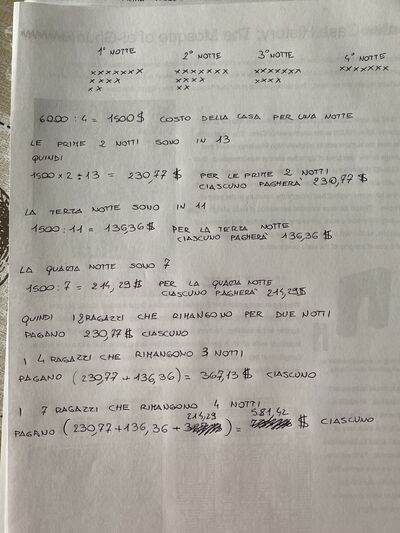 1° NOTTE 2° NOTTE 3° NOTTE 4° NOTTE
xxxxxxx xxxxxxx xxxxxxx xxxxxxx
xxxx xxxx xxxx
xx xx
6000 : 4 = 1500 $ COSTO DELLA CASA PER UNA NOTTE
LE PRIME 2 NOTTI SONO IN 13
QUINDI
1500 x 2 : 13 = 230,77 $ PER LE PRIME 2 NOTTI
CIASCUNO PAGHERÀ 230,77 $
LA TERZA NOTTE SONO IN 11
1500 : 11 = 136,36 $ PER LA TERZA NOTTE
CIASCUNO PAGHERÀ 136,36 $
LA QUARTA NOTTE SONO 7
1500 : 7 = 214,29 $ PER LA QUARTA NOTTE
CIASCUNO PAGHERÀ 214,29 $
QUINDI I 2 RAGAZZI CHE RIMANGONO PER DUE NOTTI
PAGANO 230,77 $ CIASCUNO
I 4 RAGAZZI CHE RIMANGONO 3 NOTTI
PAGANO (230,77 + 136,36) = 367,13 $ CIASCUNO
I 7 RAGAZZI CHE RIMANGONO 4 NOTTI
214,29 581,42
PAGANO (230,77 + 136,36 + ) = $ CIASCUNO